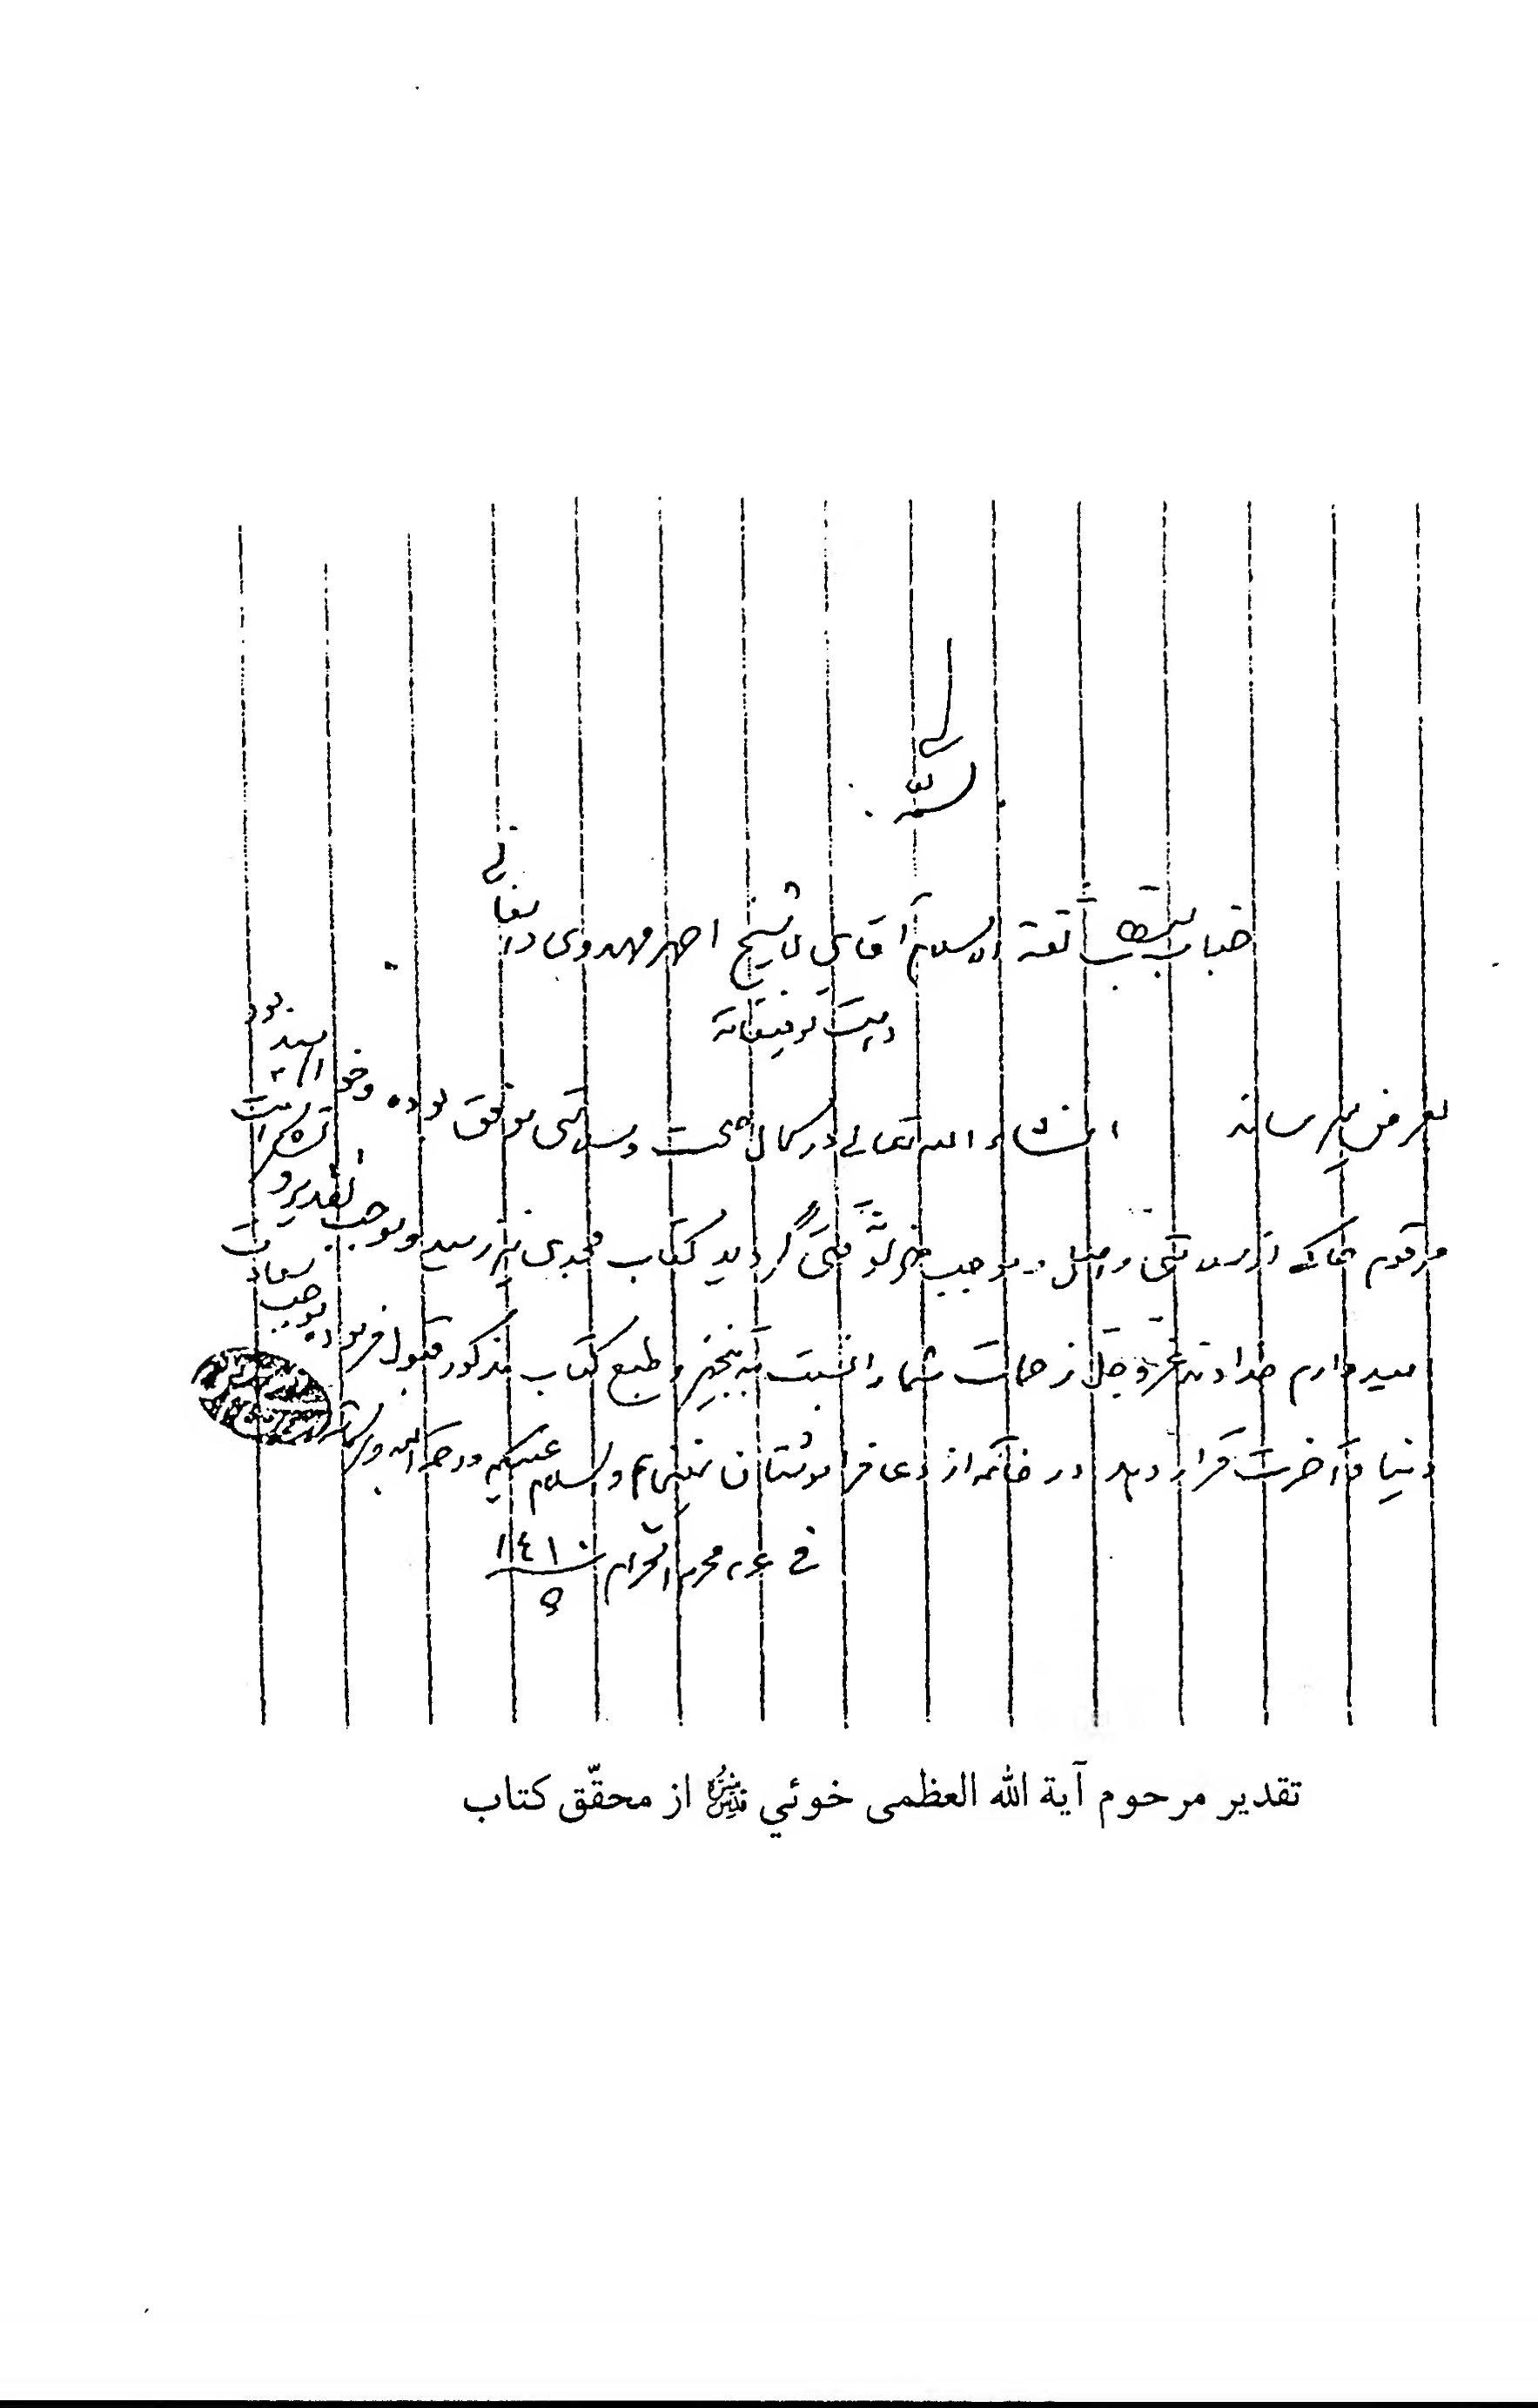 بسمه تعالی
جناب مستطاب ثقة الاسلام آقای شیخ اصغر مهدوی دامغانی
دامت توفیقاته
بعرض میرساند انشاء الله تعالی در کمال صحت و سلامتی موفق بوده و خواهید بود
مرقوم شما که از سلامتی واصل و موجب خوشوقتی گردید کتاب مجدی نیز رسید و موجب تقدیر و تشکر است
امیدوارم خداوند عزّ و جلّ زحمات شما را نسبت به و طبع کتاب مذکور قبول فرموده موجب سعادت
دنیا و آخرت قرار دهد در خاتمه از دعا فراموشتان نمینمایم والسلام علیکم ورحمة الله وبرکاته
فی محرم الحرام ١٤١٠
تقدیر مرحوم آیة الله العظمی خوئي قدس سره از محقّق کتاب